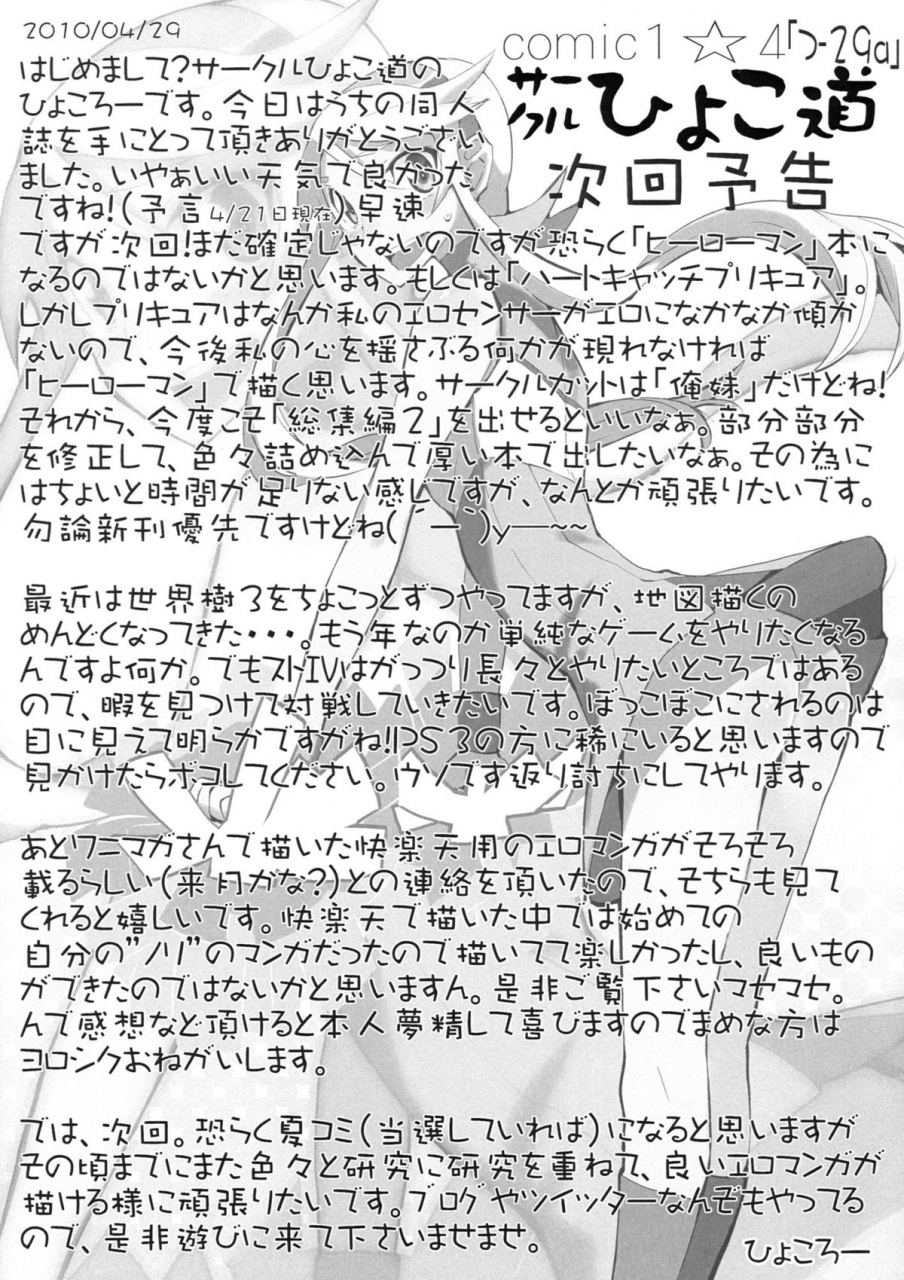 2010/04/29
comic1☆4「つ-29a」
サークルひよこ道
次回予告
はじめまして?サークルひよこ道の
ひよころーです。今日はうちの同人
誌を手にとって頂きありがとうござい
ました。いやぁいい天気で良かった
ですね!(予言4/21日現在)早速
ですが次回!まだ確定じゃないのですが恐らく「ヒーローマン」本に
なるのではないかと思います。もしくは「ハートキャッチプリキュア」。
しかしプリキュアはなんか私のエロセンサーがエロになかなか傾か
ないので、今後私の心を揺さぶる何かが現れなければ
「ヒーローマン」で描く思います。サークルカットは「俺妹」だけどね!
それから、今度こそ「総集編2」を出せるといいなぁ。部分部分
を修正して、色々詰め込んで厚い本で出したいなぁ。その為に
はちょいと時間が足りない感じですが、なんとか頑張りたいです。
勿論新刊優先ですけどね(´ー`)y─~~
最近は世界樹3をちょこっとずつやってますが、地図描くの
めんどくなってきた・・・。もう年なのか単純なゲームをやりたくなる
んですよ何か。でもストIVはがっつり長々とやりたいところではある
ので、暇を見つけて対戦していきたいです。ぼっこぼこにされるのは
目に見えて明らかですがね!!PS3の方に稀にいると思いますので
見かけたらボコしてください。ウソです返り討ちにしてやります。
あとワニマガさんで描いた快楽天用のエロマンガがそろそろ
載るらしい(来月かな?)との連絡を頂いたので、そちらも見て
くれると嬉しいです。快楽天で描いた中では始めての
自分の"ノリ"のマンガだったので描いてて楽しかったし、良いもの
ができたのではないかと思いますん。是非ご覧下さいマセマセ。
んで感想など頂けると本人夢精して喜びますのでまめな方は
ヨロシクおねがいします。
では、次回。恐らく夏コミ(当選していれば)になると思いますが
その頃までにまた色々と研究に研究を重ねて、良いエロマンガが
描ける様に頑張りたいです。ブログやツイッターなんぞもやってる
ので、是非遊びに来て下さいませませ。
ひよころー